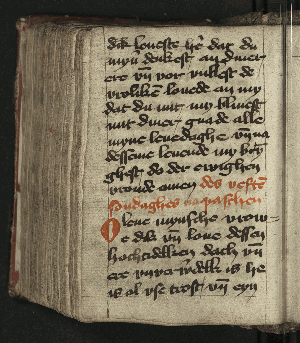 dik loueste here dat du
myn denkest an diner
ere vn vor vullest de
vroliken louede an my
dat du mit my bliuest
mit diner gnade alle
myne leuedaghe vn na
desseme leuende my bry
ghest to der ewighen
vroude amen des vefte
sondaghes na paschen
O leue mynsche vrow
e dik vn loue dessen
hochtidliken dach vn
ere wente is he
is al vse trost vn eyn